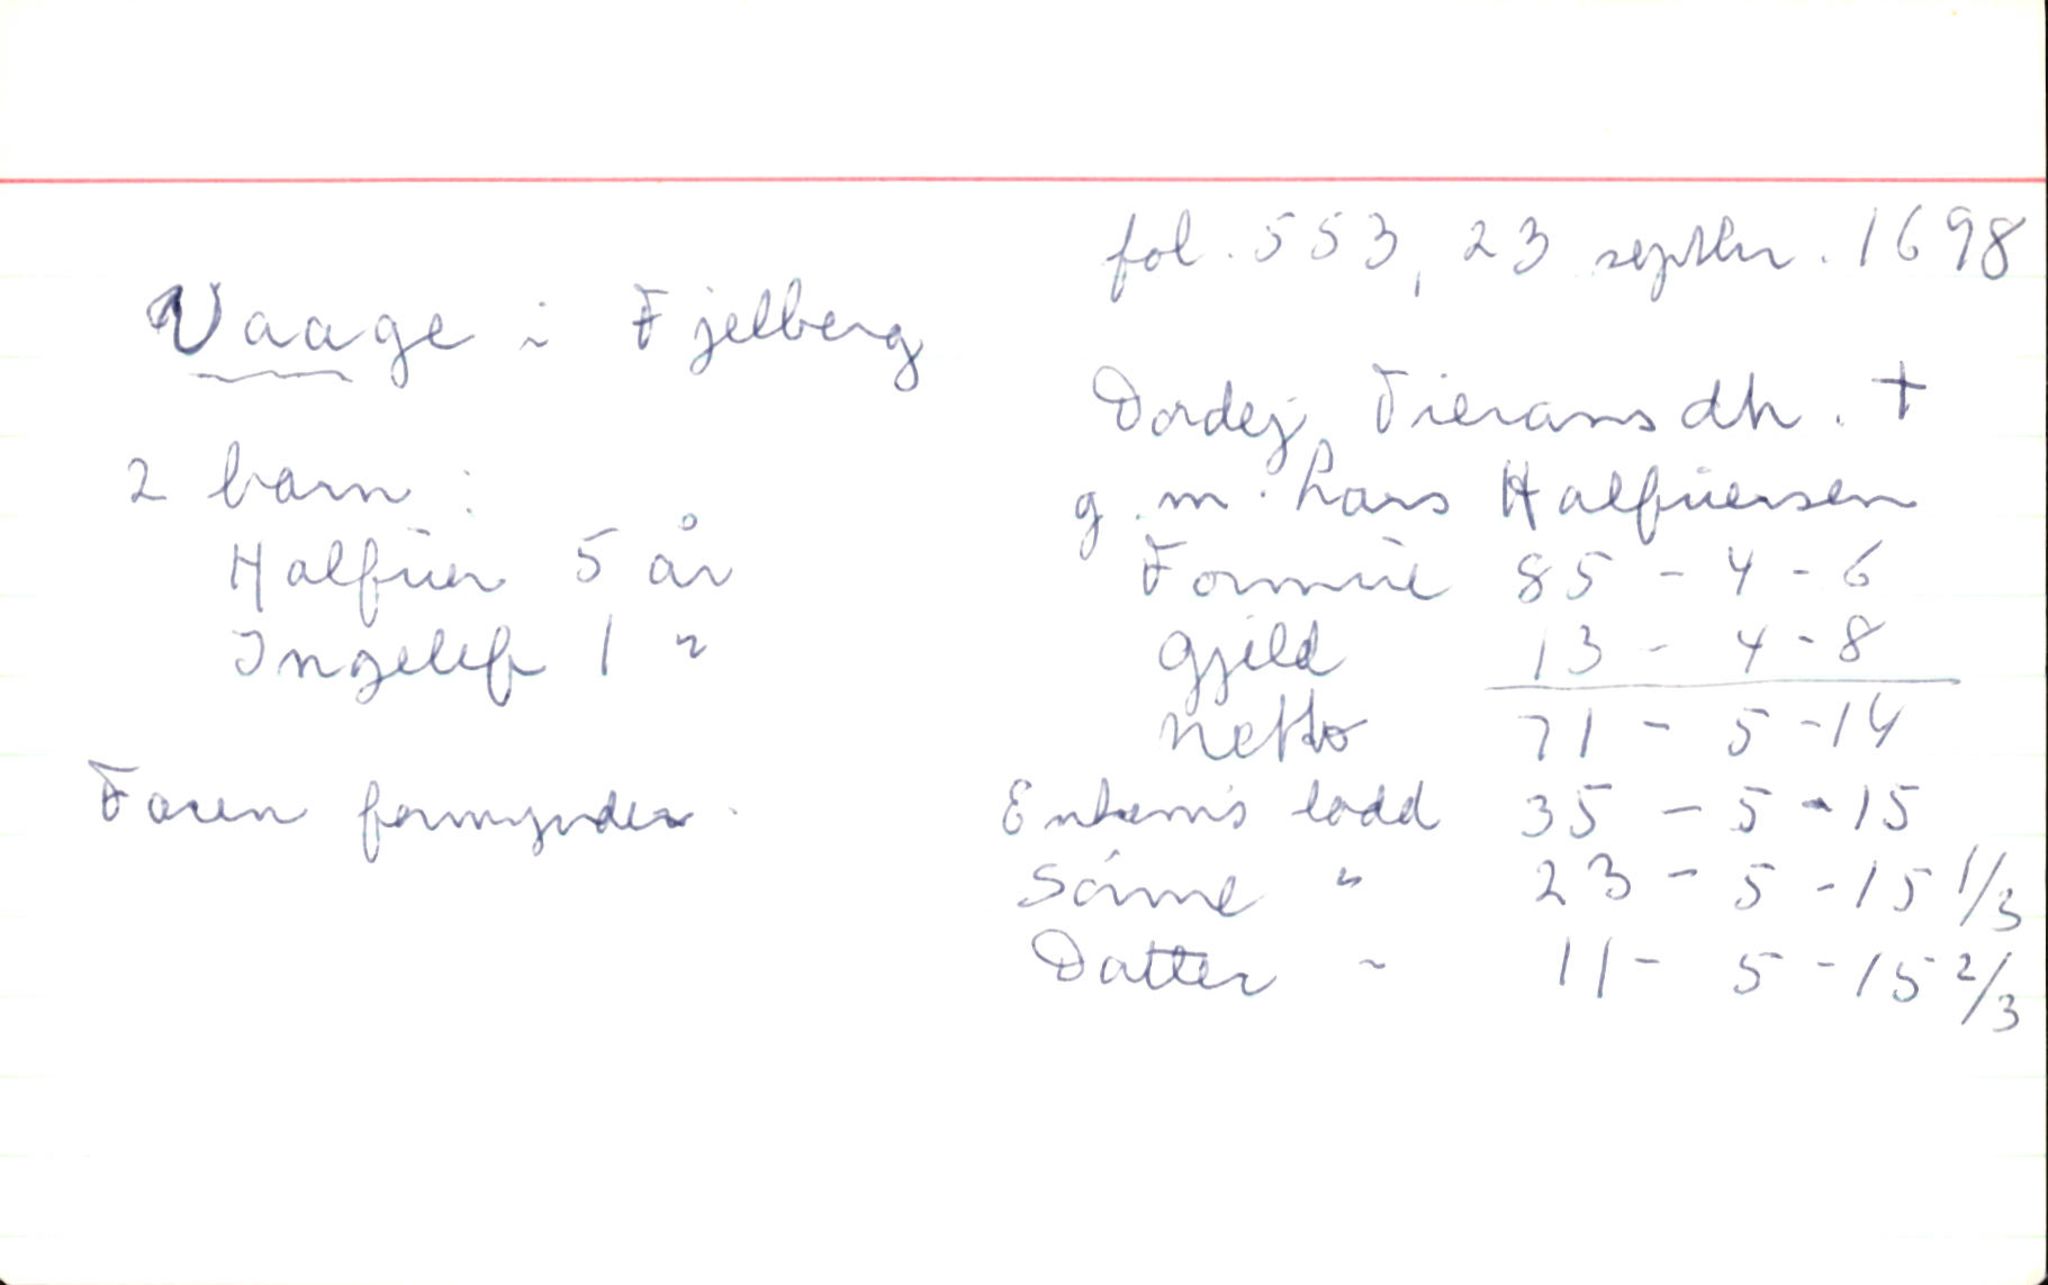 fol. 553, 23 septbr. 1698
Vaage i Fjelberg
Dordej Fieransdtr. +
g.m. Lars Halfuersen
2 barn:
Halfuer 5 år
Ingelef 1 "
Faren formynder.
Formue 85 - 4 - 6
Gjeld 13 - 4 - 8
Netto 71 - 5 - 14
Enkem's lodd 35 - 5 - 15
Sønne " 23 - 5 - 15 1/3
Datter " 11 - 5 - 15 2/3